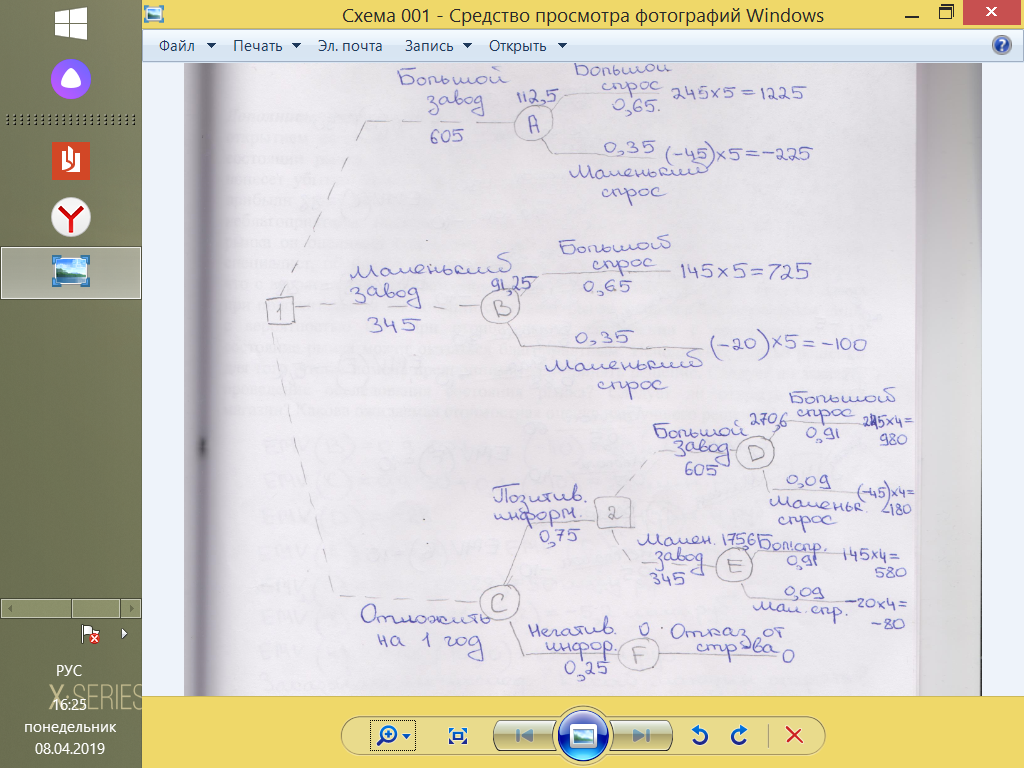 Схема 001 - Средство просмотра фотографий Windows
Файл Печать Эл. почта Запись Открыть
Большой
завод
605
112,5
A
Большой
спрос
0,65.
245×5=1225
0,35
(-45)×5=-225
Маленький
спрос
1
Маленький
завод
345
91,25
B
Большой
спрос
0,65
145×5=725
0,35
(-20)×5=-100
Маленький
спрос
Отложить
на 1 год
C
Позитив.
информ.
0,75
2
Большой
завод
605
270,6
D
Большой
спрос
0,91
245×4=
980
0,09
(-45)×4=
-180
Маленьк.
спрос
Мален.
завод
345
175,6
E
Бол.спр.
0,91
145×4=
580
0,09
Мал. спр.
-20×4=
-80
Негатив.
инфор.
0,25
0
F
Отказ от
стр-ва
0
РУС
X-SERIES
16:25
понедельник
08.04.2019